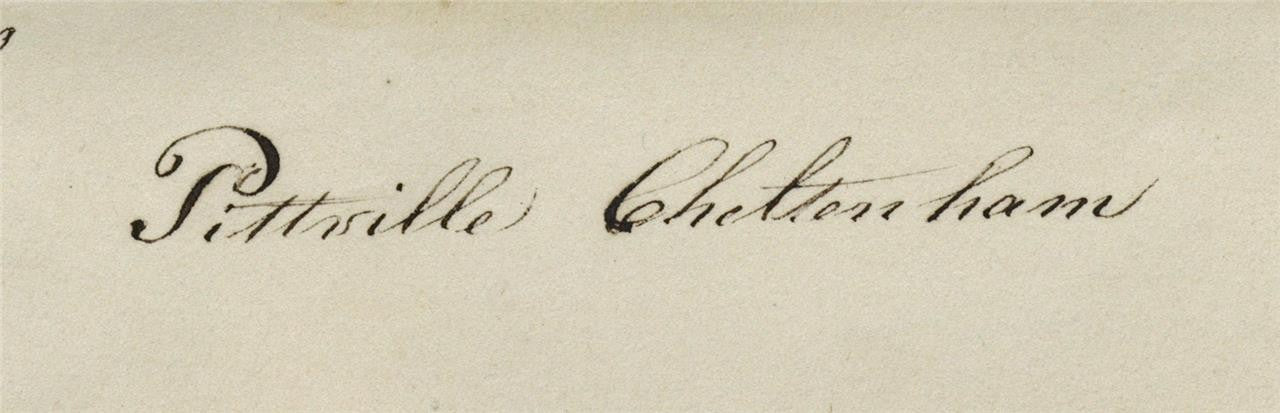 Pittville Cheltenham